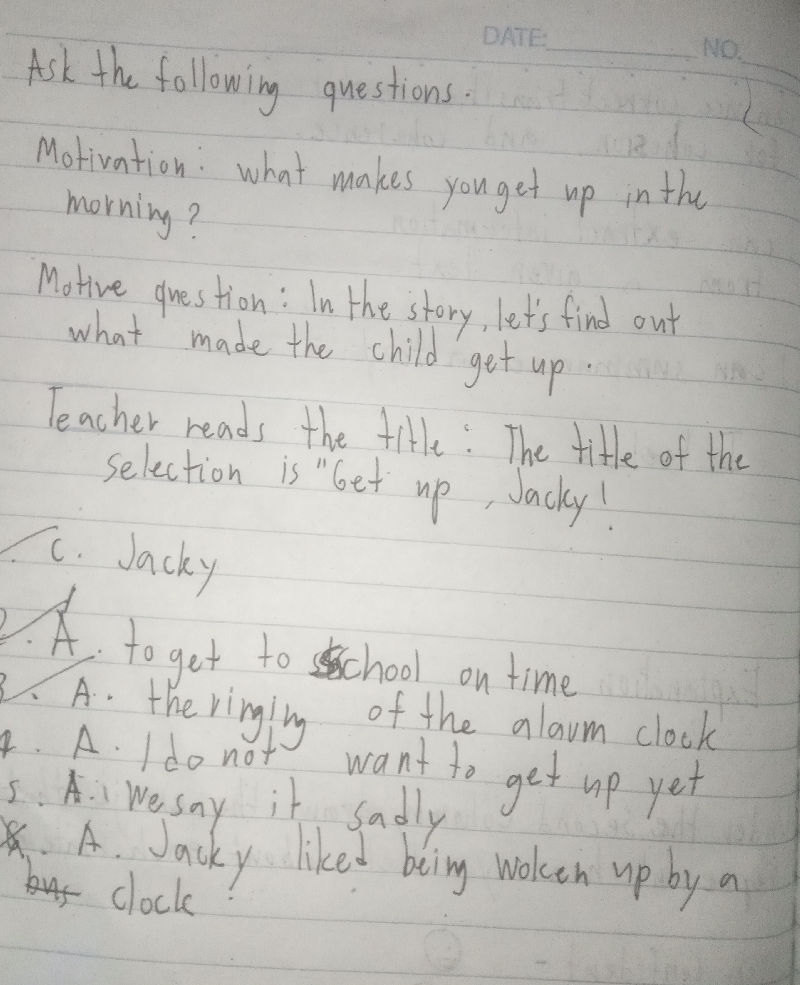 DATE: NO.
Ask the following questions.
Motivation: what makes you get up in the
morning?
Motive question: In the story, let's find out
what made the child get up.
Teacher reads the title: The title of the
selection is "Get up, Jacky!
C. Jacky
2. A. to get to school on time
3. A. the ringing of the alaum clock
4. A. I do not want to get up yet
5. A. We say it sadly
A. Jacky liked being woken up by a
clock!